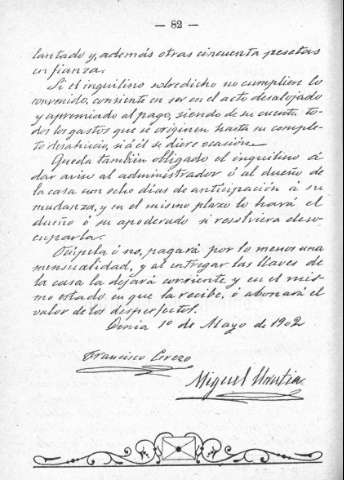 — 82 —
lantado y, además otras cincuenta pesetas
en fianza.
Si el inquilino sobredicho no cumpliere lo
convenido, consiente en ser en el acto desalojado
y apremiado al pago, siendo de su cuenta to-
dos los gastos que se originen hasta su comple-
to desahucio, si á él se diere ocasión.
Queda también obligado el inquilino á
dar aviso al administrador ó al dueño de
la casa con ocho días de anticipación á su
mudanza, y en el mismo plazo lo hará el
dueño ó su apoderado si resolviera deso-
cuparla.
Ocúpela ó no, pagará por lo menos una
mensualidad, y al entregar las llaves de
la casa la dejará corriente y en el mis-
mo estado en que la recibe, ó abonará el
valor de los desperfectos.
Denia 1º de Mayo de 1902
Francisco Cerezo
Miguel Urrutia